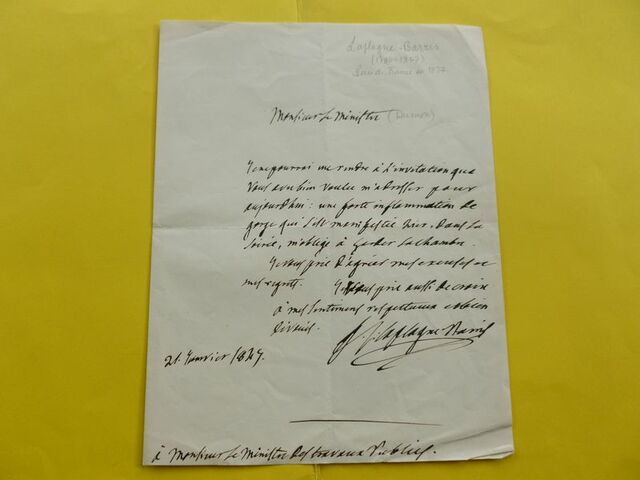 Laplagne-Barris
Pair de France en 1837
Monsieur Le Ministre (Dumon)
Je ne pourrai me rendre à L'invitation que
Vous avez bien voulu m'adresser pour
aujourd'hui : une forte inflammation de
gorge qui s'est manifestée hier, Dans La
Soirée, m'oblige à Garder La chambre.
Je vous prie D'agréer mes excuses et
mes regrets. Je vous prie aussi De croire
à mes Sentimens respectueux et bien
Dévoués.
Laplagne Barris
21. Janvier 1847
à Monsieur Le Ministre Des travaux Publics.